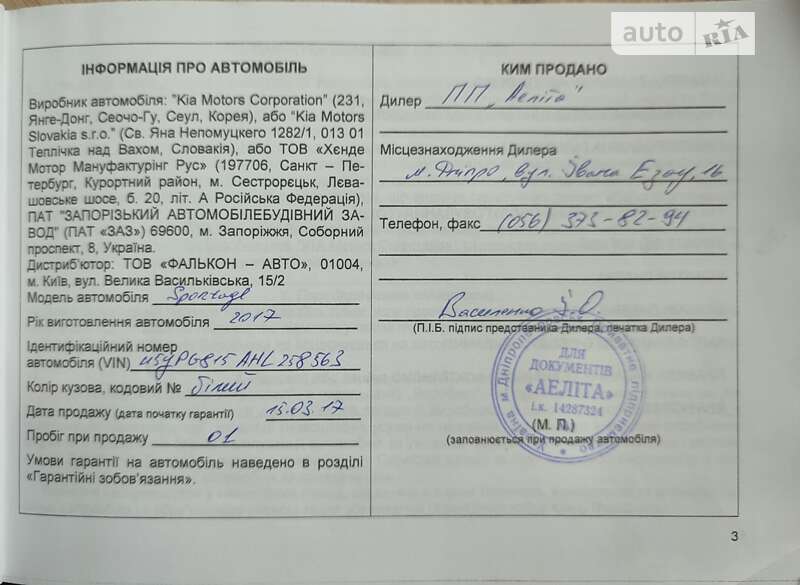 auto RIA
ІНФОРМАЦІЯ ПРО АВТОМОБІЛЬ
Виробник автомобіля: "Kia Motors Corporation" (231,
Янге-Донг, Сеочо-Гу, Сеул, Корея), або "Kia Motors
Slovakia s.r.o." (Св. Яна Непомуцкего 1282/1, 013 01
Теплічка над Вахом, Словакія), або ТОВ «Хєнде
Мотор Мануфактурінг Рус» (197706, Санкт – Пе-
тербург, Курортний район, м. Сестрорєцьк, Лєва-
шовське шосе, б. 20, літ. А Російська Федерація),
ПАТ "ЗАПОРІЗЬКИЙ АВТОМОБІЛЕБУДІВНИЙ ЗА-
ВОД" (ПАТ «ЗАЗ») 69600, м. Запоріжжя, Соборний
проспект, 8, Україна.
Дистриб'ютор: ТОВ «ФАЛЬКОН – АВТО», 01004,
м. Київ, вул. Велика Васильківська, 15/2
Модель автомобіля Sportage
Рік виготовлення автомобіля 2017
Ідентифікаційний номер
автомобіля (VIN) U5YPG815AHL258563
Колір кузова, кодовий № білий
Дата продажу (дата початку гарантії) 15.03.17
Пробіг при продажу 01
Умови гарантії на автомобіль наведено в розділі
«Гарантійні зобов'язання».
КИМ ПРОДАНО
Дилер ПП „Аеліта"
Місцезнаходження Дилера
м. Дніпро, вул. Івана Езау, 16
Телефон, факс (056) 373-82-94
Василенко
(П.І.Б. підпис представника Дилера, печатка Дилера)
ДЛЯ
ДОКУМЕНТІВ
«АЕЛІТА»
і.к. 14287324
(М. П.)
(заповнюється при продажу автомобіля)
3